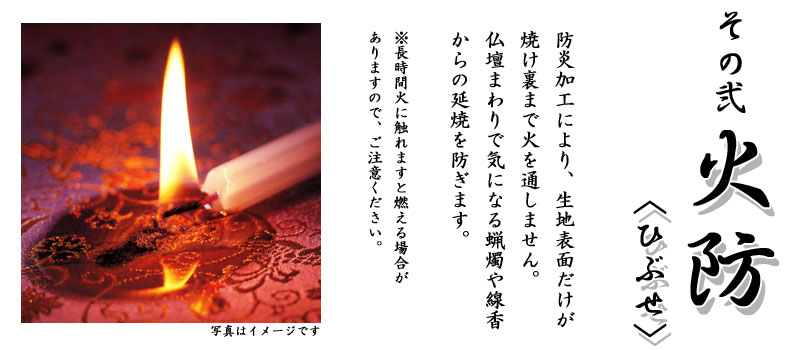 その弐
火防
〈ひぶせ〉
防炎加工により、生地表面だけが
焼け裏まで火を通しません。
仏壇まわりで気になる蝋燭や線香
からの延焼を防ぎます。
※長時間火に触れますと燃える場合が
ありますので、ご注意ください。
写真はイメージです